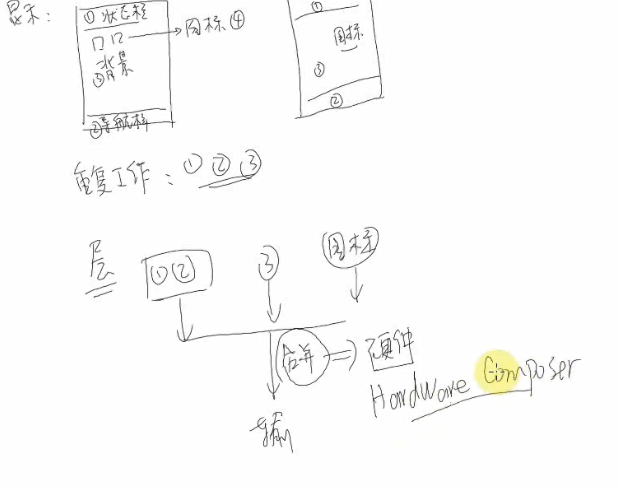 显示：
① 状态栏
口 口 → 图标 ④
背景
③
② 导航栏
①
图标
③
②
重复工作：① ② ③
层
① ② ③ 图标
合并 ⇒ 硬件
Hardware Composer